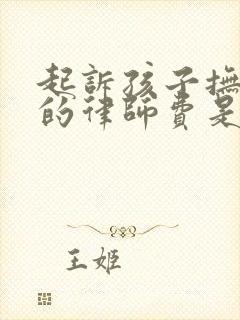 起訴孩子撫
的律師費是
王姬